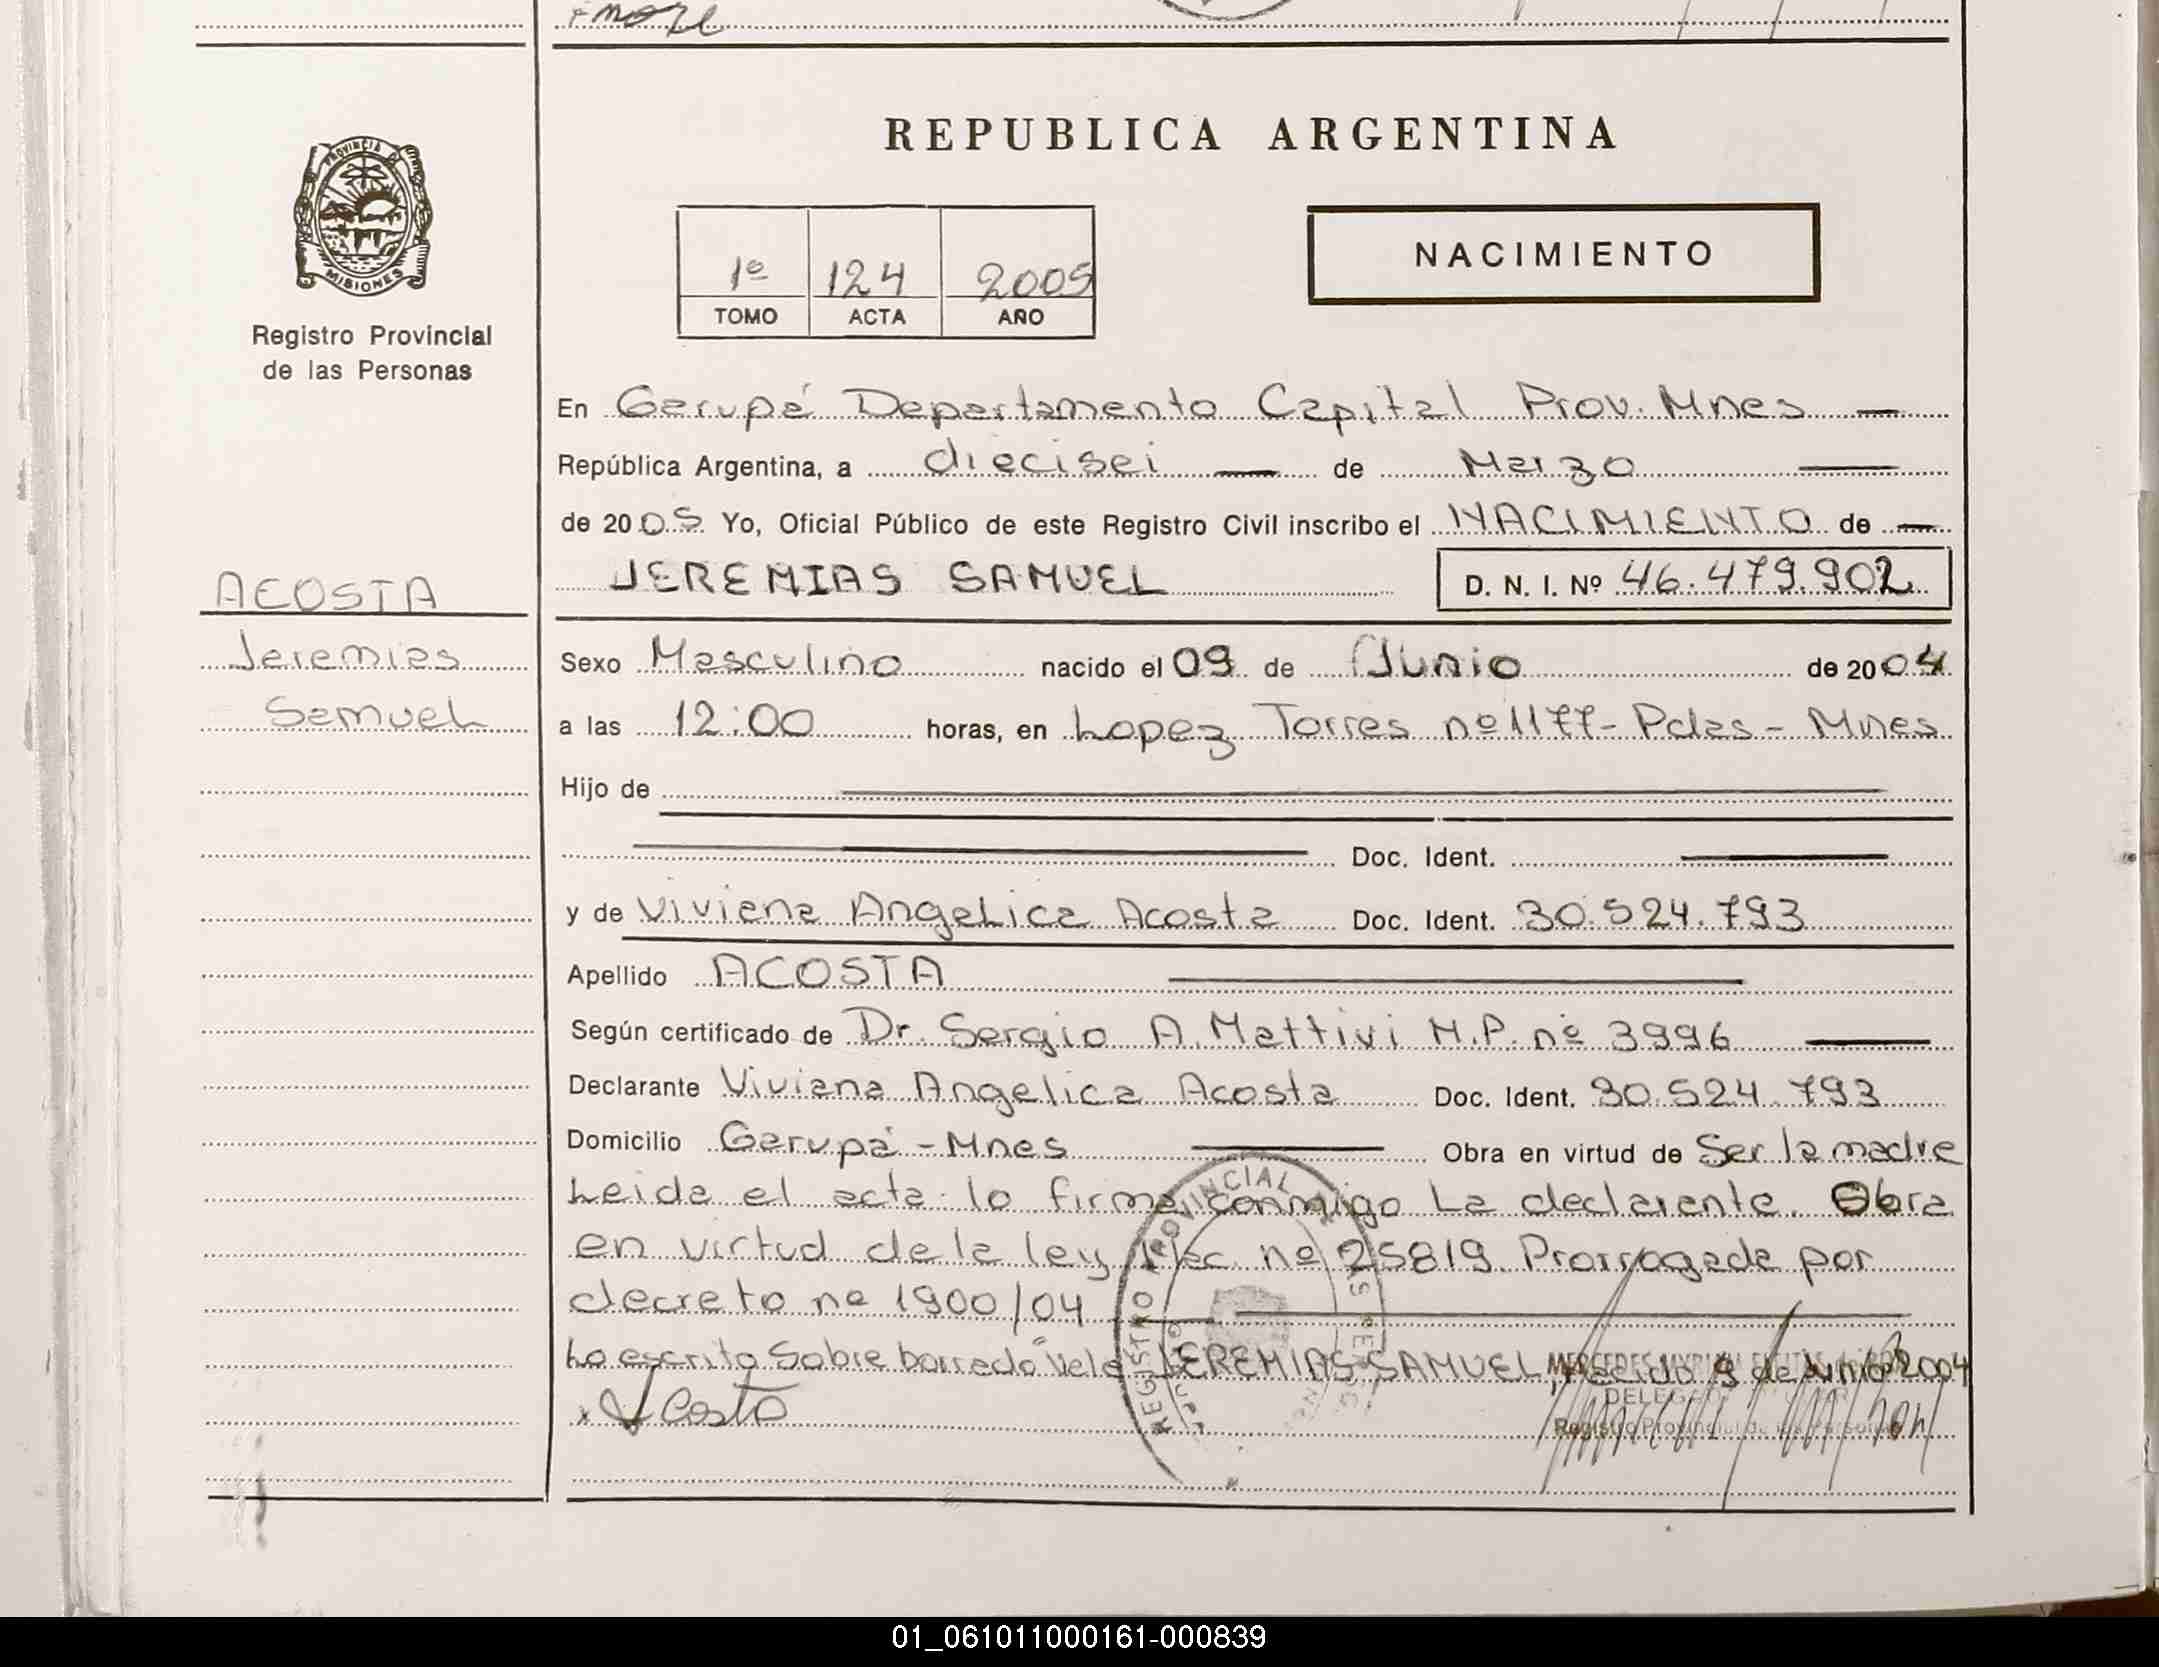 REPUBLICA ARGENTINA
PROVINCIA DE
MISIONES
Registro Provincial
de las Personas
1º 124 2005
TOMO ACTA AÑO
NACIMIENTO
En Garupá Departamento Capital Prov. Mnes
República Argentina, a diecisei de Marzo
de 2005 Yo, Oficial Público de este Registro Civil inscribo el NACIMIENTO de
JEREMIAS SAMUEL D. N. I. Nº 46.479.902
ACOSTA
Jeremias
Samuel
Sexo Masculino nacido el 09 de Junio de 2004
a las 12:00 horas, en Lopez Torres nº 1177- Pdas - Mnes
Hijo de
Doc. Ident.
y de Viviana Angelica Acosta Doc. Ident. 30.524.793
Apellido ACOSTA
Según certificado de Dr. Sergio A. Mattivi M.P. nº 3996
Declarante Viviana Angelica Acosta Doc. Ident. 30.524.793
Domicilio Garupá - Mnes Obra en virtud de Ser la madre
Leida el acta lo firma conmigo La declarante. Obra
en virtud de la ley Nac. nº 25819. Prorrogada por
decreto nº 1900/04
Lo escrito Sobre borrado Vale JEREMIAS SAMUEL, nacido 9 de Junio 2004
x Acosta
REGISTRO PROVINCIAL
Registro Provincial de las Personas
01_061011000161-000839